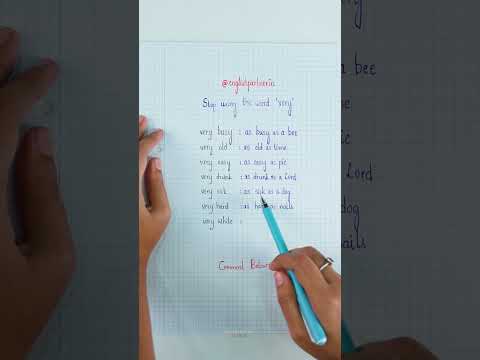 @englishpartner
Stop using the word 'very'
very busy : as busy as a bee
very old : as old as time
very easy : as easy as pie
very drunk : as drunk as a Lord
very sick : as sick as a dog
very hard : as nails
very white :
Comment Below